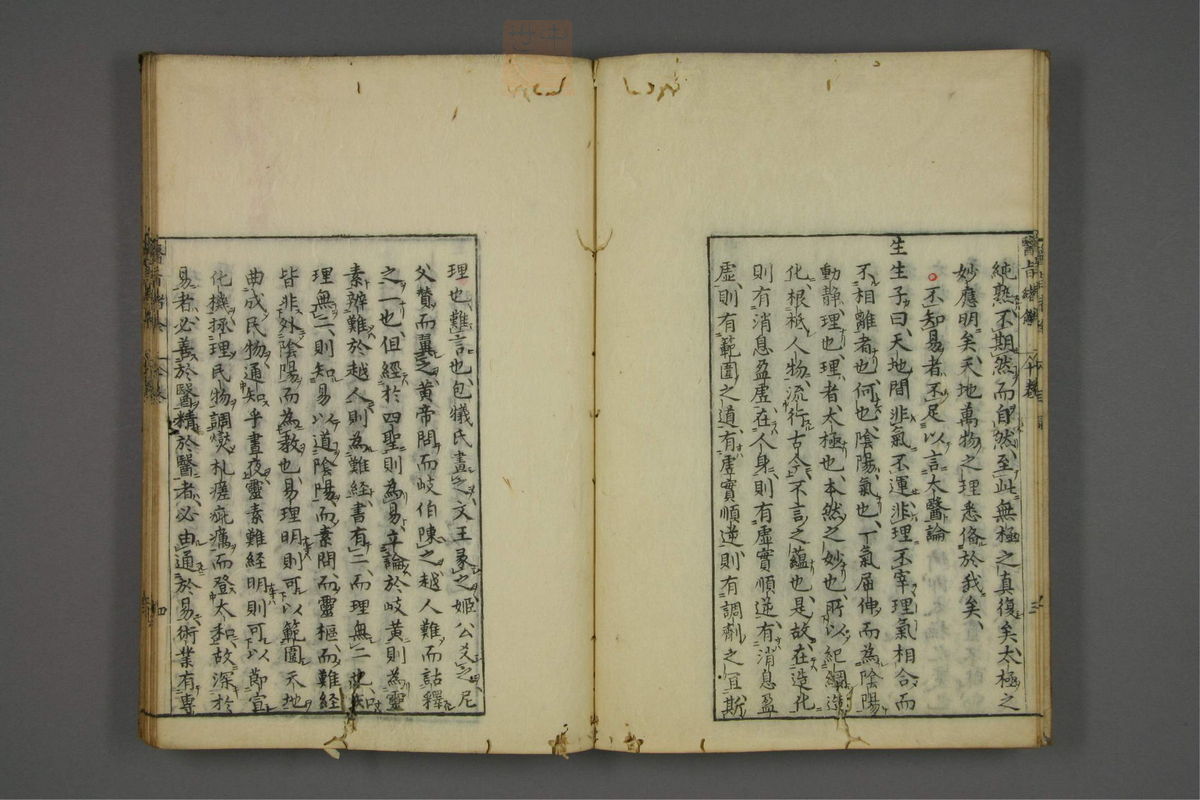 純熟、不期然而自然、至此無極之真復矣、太極之
妙應明矣、天地萬物之理悉俻於我矣、
不知易者不足以言太醫論
生生子曰天地間非氣不運、非理不宰、理氣相合而
不相離者也、何也、陰陽氣也、一氣屈伸而為陰陽
動靜、理也、理者太極也、本然之妙也、所以紀綱造
化、根柢人物、流行古今、不言之蘊也、是故、在造化
則有消息盈虛、在人身則有虛實順逆、有消息盈
虛、則有範圍之道、有虛實順逆、則有調劑之宜、斯
理也、難言也、包犧氏畫之、文王彖之、姬公爻之、尼
父贊而翼之、黃帝問而岐伯陳之、越人難而詁釋
之一也、但經於四聖則為易、立論於岐黃則為靈
素、辨難於越人則為難經、書有二、而理無二
理無二、則知易以道陰陽、而素問、而靈樞、而難經
皆非外陰陽而為教也、易理明則可以範圍天地
曲成民物、通知乎晝夜、靈素難經明則可以節宣
化機、拯理民物、調爕札瘥疵癘而登太和、故深於
易者、必善於醫、精於醫者、必由通於易、術業有專
三
四